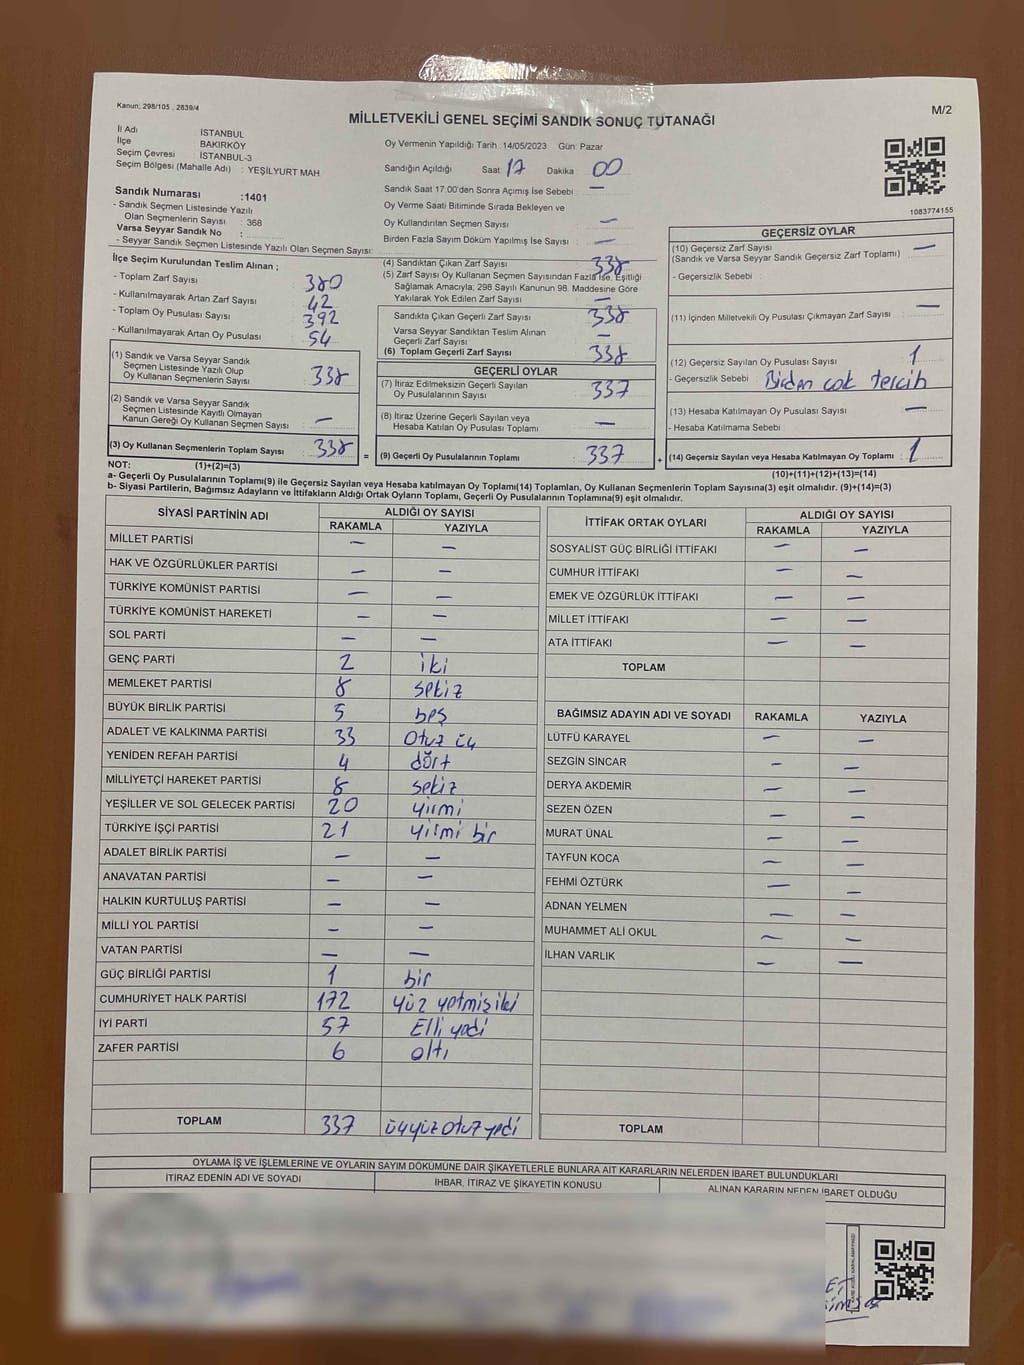 Kanun: 298/105 , 2839/4
M/2
MİLLETVEKİLİ GENEL SEÇİMİ SANDIK SONUÇ TUTANAĞI
İl Adı İSTANBUL
İlçe BAKIRKÖY
Seçim Çevresi : İSTANBUL-3
Seçim Bölgesi (Mahalle Adı) : YEŞİLYURT MAH
Sandık Numarası :1401
- Sandık Seçmen Listesinde Yazılı
Olan Seçmenlerin Sayısı : 368
Varsa Seyyar Sandık No :
- Seyyar Sandık Seçmen Listesinde Yazılı Olan Seçmen Sayısı:
Oy Vermenin Yapıldığı Tarih : 14/05/2023 Gün: Pazar
Sandığın Açıldığı Saat 17 Dakika 00
Sandık Saat 17.00'den Sonra Açımış İse Sebebi : —
Oy Verme Saati Bitiminde Sırada Bekleyen ve
Oy Kullandırılan Seçmen Sayısı : —
Birden Fazla Sayım Döküm Yapılmış İse Sayısı : —
1083774155
İlçe Seçim Kurulundan Teslim Alınan ;
- Toplam Zarf Sayısı : 380
- Kullanılmayarak Artan Zarf Sayısı : 42
- Toplam Oy Pusulası Sayısı : 392
- Kullanılmayarak Artan Oy Pusulası : 54
(1) Sandık ve Varsa Seyyar Sandık
Seçmen Listesinde Yazılı Olup
Oy Kullanan Seçmenlerin Sayısı : 338
(2) Sandık ve Varsa Seyyar Sandık
Seçmen Listesinde Kayıtlı Olmayan
Kanun Gereği Oy Kullanan Seçmen Sayısı : —
(3) Oy Kullanan Seçmenlerin Toplam Sayısı : 338
(4) Sandıktan Çıkan Zarf Sayısı : 338
(5) Zarf Sayısı Oy Kullanan Seçmen Sayısından Fazla İse, Eşitliği
Sağlamak Amacıyla; 298 Sayılı Kanunun 98. Maddesine Göre
Yakılarak Yok Edilen Zarf Sayısı : —
Sandıkta Çıkan Geçerli Zarf Sayısı : 338
Varsa Seyyar Sandıktan Teslim Alınan
Geçerli Zarf Sayısı : —
(6) Toplam Geçerli Zarf Sayısı : 338
GEÇERLİ OYLAR
(7) İtiraz Edilmeksizin Geçerli Sayılan
Oy Pusulalarının Sayısı : 337
(8) İtiraz Üzerine Geçerli Sayılan veya
Hesaba Katılan Oy Pusulası Toplamı : —
= (9) Geçerli Oy Pusulalarının Toplamı : 337 +
GEÇERSİZ OYLAR
(10) Geçersiz Zarf Sayısı : —
(Sandık ve Varsa Seyyar Sandık Geçersiz Zarf Toplamı)
- Geçersizlik Sebebi :
(11) İçinden Milletvekili Oy Pusulası Çıkmayan Zarf Sayısı : —
(12) Geçersiz Sayılan Oy Pusulası Sayısı : 1
- Geçersizlik Sebebi : Birden çok tercih
(13) Hesaba Katılmayan Oy Pusulası Sayısı : —
- Hesaba Katılmama Sebebi
(14) Geçersiz Sayılan veya Hesaba Katılmayan Oy Toplamı : 1
NOT: (1)+(2)=(3) (10)+(11)+(12)+(13)=(14)
a- Geçerli Oy Pusulasının Toplamı(9) ile Geçersiz Sayılan veya Hesaba katılmayan Oy Toplamı(14) Toplamları, Oy Kullanan Seçmenlerin Toplam Sayısına(3) eşit olmalıdır. (9)+(14)=(3)
b- Siyasi Partilerin, Bağımsız Adayların ve İttifakların Aldığı Ortak Oyların Toplamı, Geçerli Oy Pusulasının Toplamına(9) eşit olmalıdır.
SİYASİ PARTİNİN ADI ALDIĞI OY SAYISI
RAKAMLA YAZIYLA
MİLLET PARTİSİ — —
HAK VE ÖZGÜRLÜKLER PARTİSİ — —
TÜRKİYE KOMÜNİST PARTİSİ — —
TÜRKİYE KOMÜNİST HAREKETİ — —
SOL PARTİ — —
GENÇ PARTİ 2 iki
MEMLEKET PARTİSİ 8 sekiz
BÜYÜK BİRLİK PARTİSİ 5 beş
ADALET VE KALKINMA PARTİSİ 33 Otuz üç
YENİDEN REFAH PARTİSİ 4 dört
MİLLİYETÇİ HAREKET PARTİSİ 8 sekiz
YEŞİLLER VE SOL GELECEK PARTİSİ 20 yirmi
TÜRKİYE İŞÇİ PARTİSİ 21 yirmi bir
ADALET BİRLİK PARTİSİ — —
ANAVATAN PARTİSİ — —
HALKIN KURTULUŞ PARTİSİ — —
MİLLİ YOL PARTİSİ — —
VATAN PARTİSİ — —
GÜÇ BİRLİĞİ PARTİSİ 1 bir
CUMHURİYET HALK PARTİSİ 172 yüz yetmiş iki
İYİ PARTİ 57 Elli yedi
ZAFER PARTİSİ 6 altı
TOPLAM 337 üçyüz otuz yedi
İTTİFAK ORTAK OYLARI ALDIĞI OY SAYISI
RAKAMLA YAZIYLA
SOSYALİST GÜÇ BİRLİĞİ İTTİFAKI — —
CUMHUR İTTİFAKI — —
EMEK VE ÖZGÜRLÜK İTTİFAKI — —
MİLLET İTTİFAKI — —
ATA İTTİFAKI — —
TOPLAM
BAĞIMSIZ ADAYIN ADI VE SOYADI RAKAMLA YAZIYLA
LÜTFÜ KARAYEL — —
SEZGİN SİNCAR — —
DERYA AKDEMİR — —
SEZEN ÖZEN — —
MURAT ÜNAL — —
TAYFUN KOCA — —
FEHMİ ÖZTÜRK — —
ADNAN YELMEN — —
MUHAMMET ALİ OKUL — —
İLHAN VARLIK — —
TOPLAM
OYLAMA İŞ VE İŞLEMLERİNE VE OYLARIN SAYIM DÖKÜMÜNE DAİR ŞİKAYETLERLE BUNLARA AİT KARARLARIN NELERDEN İBARET BULUNDUKLARI
İTİRAZ EDENİN ADI VE SOYADI İHBAR, İTİRAZ VE ŞİKAYETİN KONUSU ALINAN KARARIN NEDEN İBARET OLDUĞU